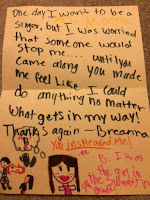 One day I want to be a
singer, but I was worried
that someone would
stop me.... until you
came along you made
me feel like I could
do anything no matter
what gets in my way!
Thanks again ~ Breanna
You Inspeared Me!
P.S. I was
the girl in
the